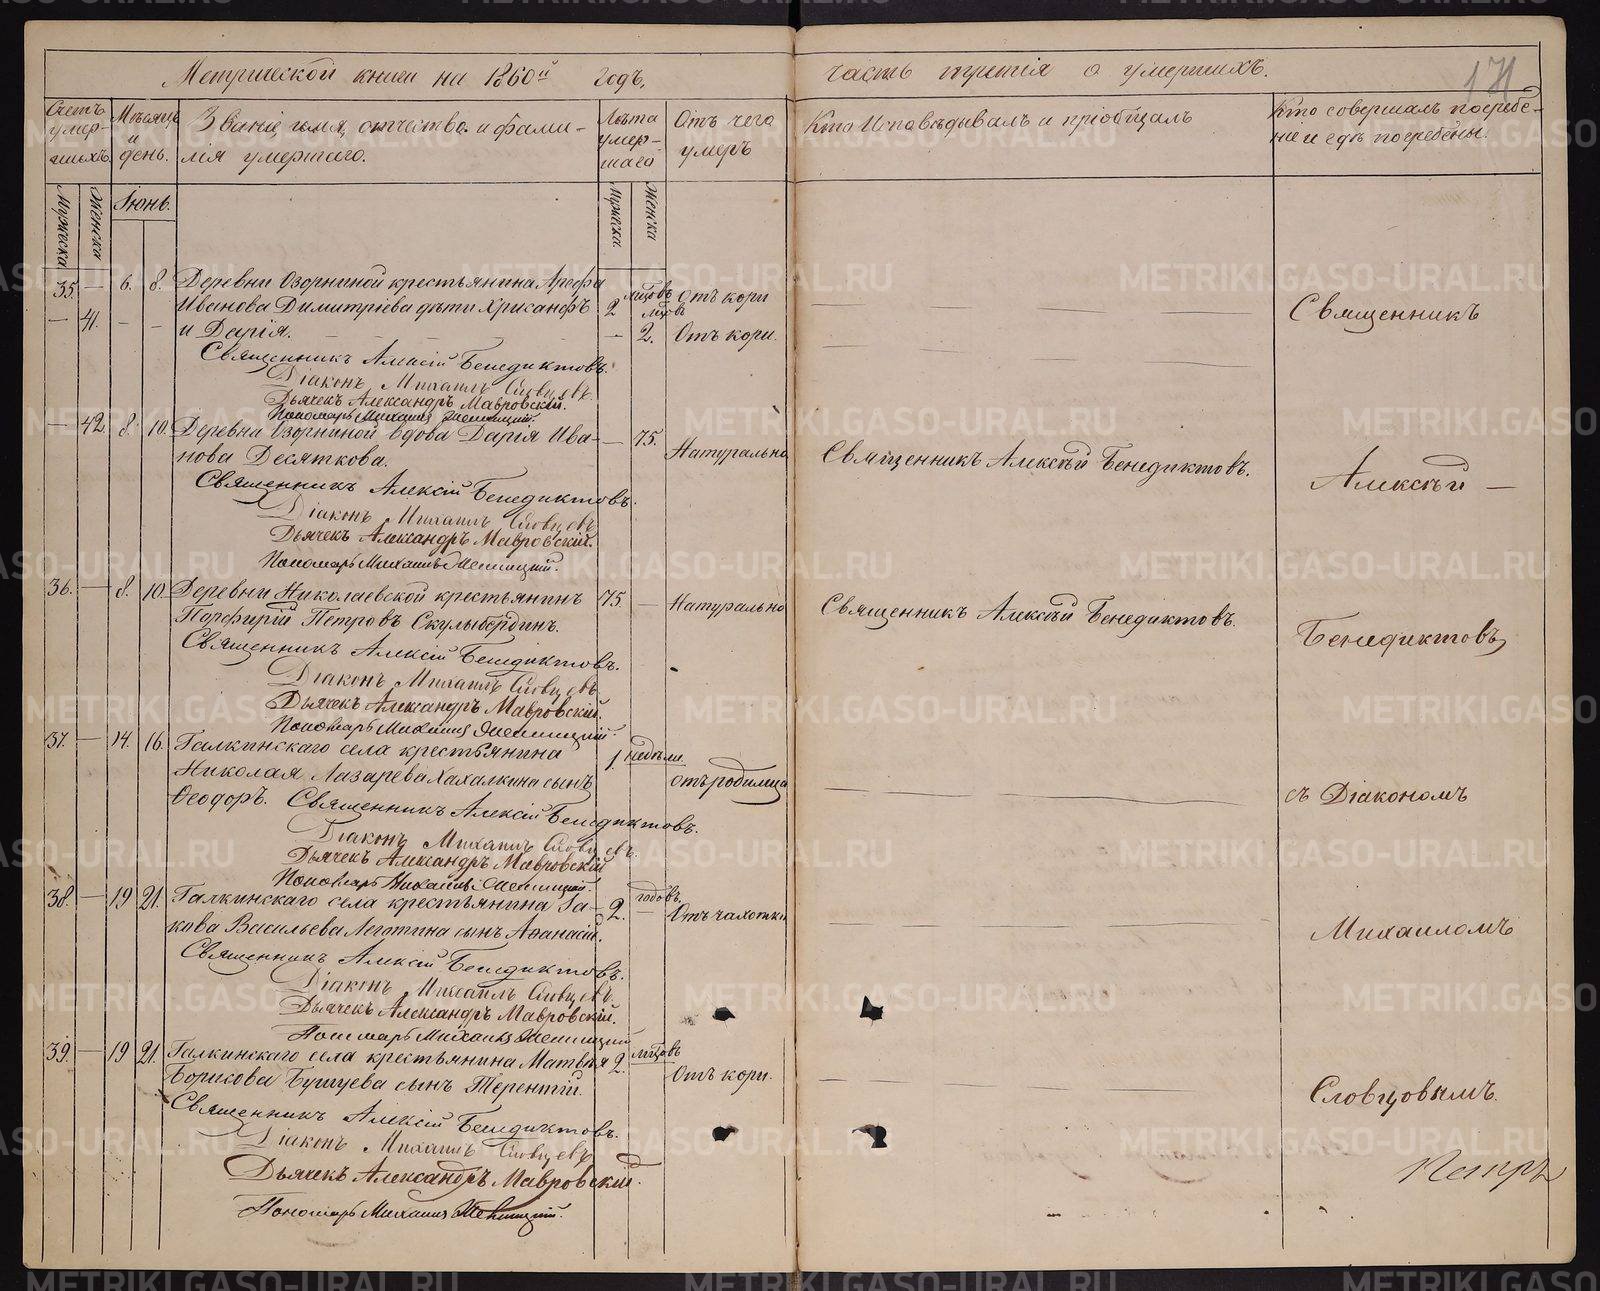 Метрической книги на 1860й годъ,
часть третія о умершихъ.
171
Счетъ умер-шихъ.
Мѣсяцъ и день.
Званіе, имя, отчество и фами-
лія умершаго.
Лѣта умер-шаго
Отъ чего умеръ
Кто Исповѣдывалъ и пріобщалъ
Кто совершалъ погребе-
ніе и гдѣ погребены.
Мужеска
Женска
Іюнь.
Мужеска
Женска
35. — 6. 8. Деревни Озорниной крестьянина Арефы
Иванова Димитріева дѣти Хрисанфъ 2 лѣтовъ Отъ кори
— 41. — — и Дарія. — 2. лѣтъ Отъ кори.
Священникъ
Священникъ Алексій Бенедиктовъ.
Діаконъ Михаилъ Словцевъ.
Дьячекъ Александръ Мавровскій.
Пономарь Михаилъ
— 42 8. 10. Деревни Озорниной вдова Дарія Ива- — 75. Натурально
нова Десяткова.
Священникъ Алексѣй Бенедиктовъ.
Алексѣй —
Священникъ Алексій Бенедиктовъ.
Діаконъ Михаилъ Словцевъ
Дьячекъ Александръ Мавровскій.
Пономарь Михаилъ
36. — 8. 10. Деревни Николаевской крестьянинъ 75. — Натурально
Порфирій Петровъ Скулыбердинъ.
Священникъ Алексѣй Бенедиктовъ.
Бенедиктовъ
Священникъ Алексій Бенедиктовъ.
Діаконъ Михаилъ Словцевъ
Дьячекъ Александръ Мавровскій.
Пономарь Михаилъ
37. — 14. 16. Галкинскаго села крестьянина 1. недѣли
Николая Лазарева Хахалкина сынъ отъ родимца
Ѳеодоръ.
съ Діакономъ
Священникъ Алексій Бенедиктовъ.
Діаконъ Михаилъ Словцевъ.
Дьячекъ Александръ Мавровскій
Пономарь Михаилъ
38. — 19 21. Галкинскаго села крестьянина Іа- 2. годовъ. — Отъ чахотки
кова Васильева Леготина сынъ Аѳанасій.
Михаиломъ
Священникъ Алексій Бенедиктовъ.
Діаконъ Михаилъ Словцевъ.
Дьячекъ Александръ Мавровскій.
Пономарь Михаилъ
39. — 19 21. Галкинскаго села крестьянина Матвѣя 2. лѣтовъ
Борисова Бушуева сынъ Терентій. Отъ кори.
Словцовымъ.
Священникъ Алексій Бенедиктовъ.
Діаконъ Михаилъ Словцевъ
Дьячекъ Александръ Мавровскій.
Пономарь Михаилъ
Петръ
METRIKI.GASO-URAL.RU